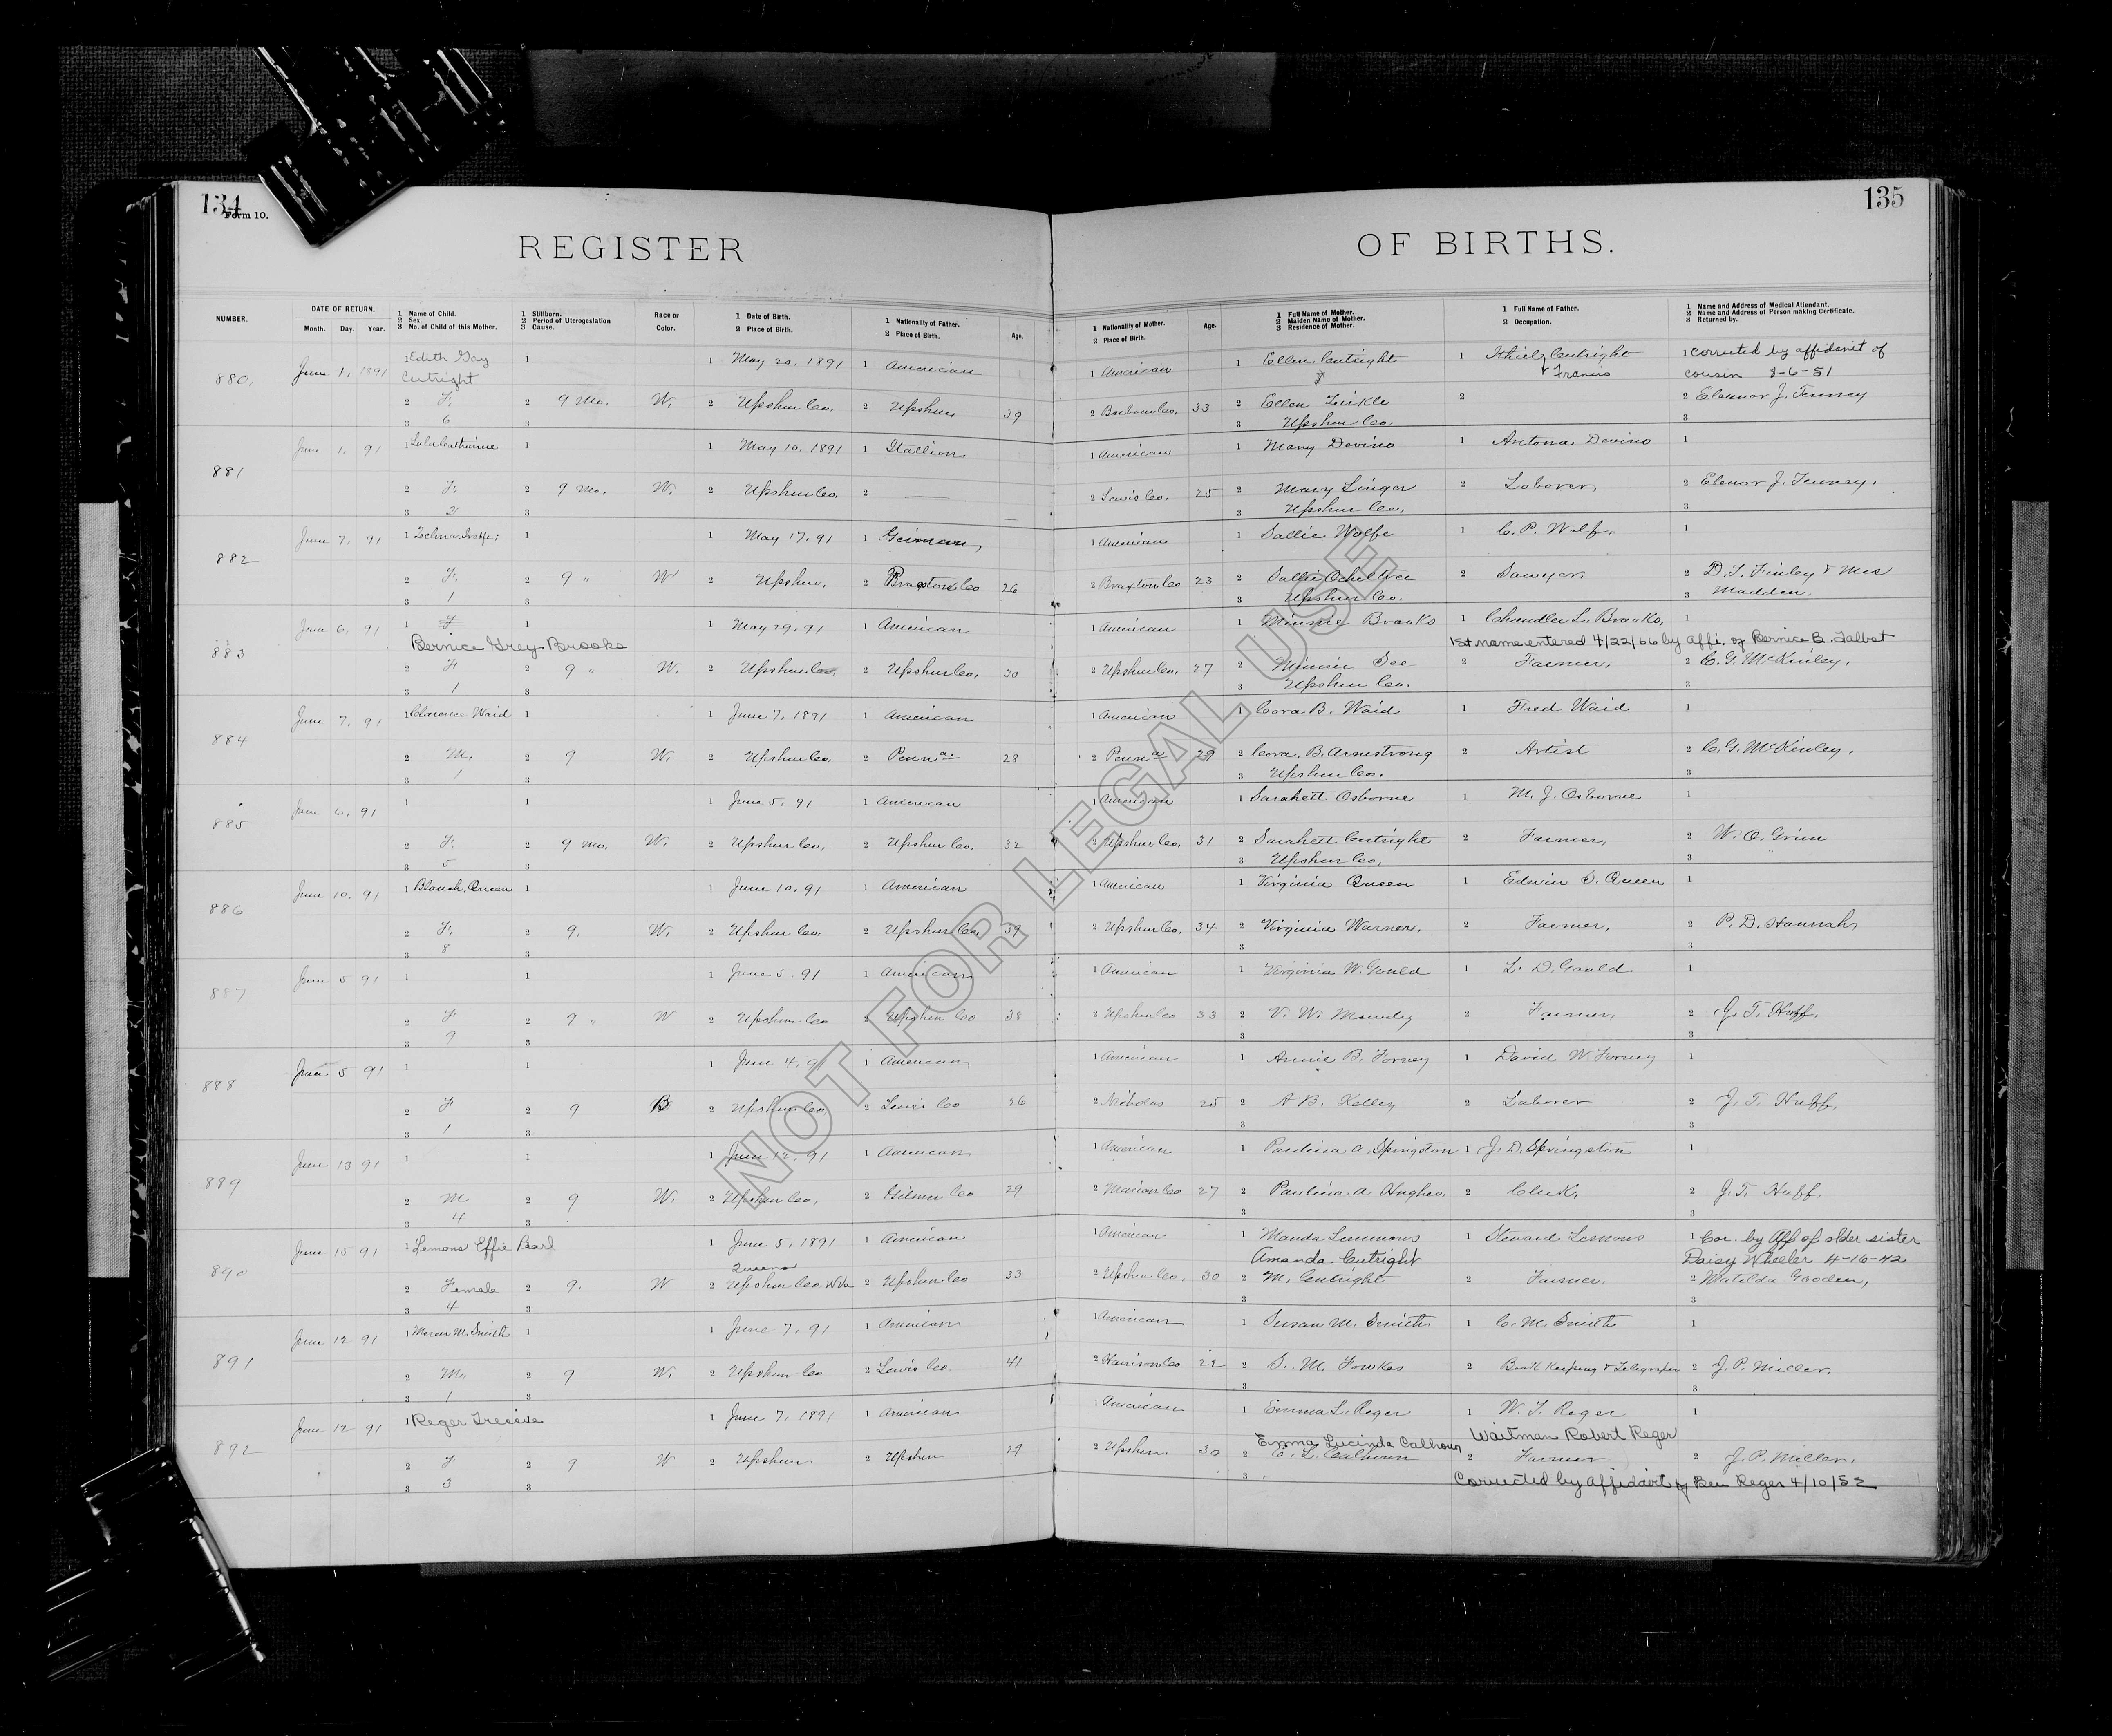 134
Form 10.
135
REGISTER OF BIRTHS.
NUMBER.
DATE OF RETURN.
Month. Day. Year.
1 Name of Child.
2 Sex.
3 No. of Child of this Mother.
1 Stillborn.
2 Period of Uterogestation
3 Cause.
Race or
Color.
1 Date of Birth.
2 Place of Birth.
1 Nationality of Father.
2 Place of Birth.
Age.
1 Nationality of Mother.
2 Place of Birth.
Age.
1 Full Name of Mother.
2 Maiden Name of Mother.
3 Residence of Mother.
1 Full Name of Father.
2 Occupation.
1 Name and Address of Medical Attendant.
2 Name and Address of Person making Certificate.
3 Returned by.
880. June 1, 1891 1 Edith Gay 1 1 May 20, 1891 1 American 1 American 1 Ellen Cutright 1 Cutright 1 Corrected by affidavit of
Cutright Francis cousin 8-6-51
2 F. 2 9 Mo. W. 2 Upshur Co. 2 Upshur 39 2 Barbour Co. 33 2 Ellen Zirkle 2 2 Eleanor J. Tenney
3 6 3 3 Upshur Co. 3
881 June 1. 91 1 Lula Catharine 1 1 May 10. 1891 1 Itallion 1 American 1 Mary Devino 1 Antona Devino 1
2 F. 2 9 Mo. W. 2 Upshur Co. 2 — 2 Lewis Co. 25 2 Mary Linger 2 Laborer. 2 Elenor J. Tenney.
3 2 3 3 Upshur Co. 3
882 June 7. 91 1 1 1 May 17. 91 1 German 1 American 1 Sallie Wolfe 1 C. P. Wolf. 1
2 F. 2 9 " W 2 Upshur. 2 Braxton Co 26 2 Braxton Co 23 2 Sallie Ocheltree 2 Sawyer. 2 D. T. Finley & Mrs
3 1 3 3 Upshur Co. 3 Madden.
883 June 6. 91 1 F 1 1 May 29. 91 1 American 1 American 1 Minnie Brooks 1 Chandler L. Brooks. 1
Bernice Grey Brooks 1st name entered 4/22/66 by affi. of Bernice B. Talbot
2 F 2 9 " W. 2 Upshur Co. 2 Upshur Co. 30 2 Upshur Co. 27 2 Minnie See 2 Farmer. 2 C. G. McKinley.
3 1 3 3 Upshur Co. 3
884 June 7. 91 1 Clarence Waid 1 1 June 7. 1891 1 American 1 American 1 Cora B. Waid 1 Fred Waid 1
2 M. 2 9 W. 2 Upshur Co. 2 Penna 28 2 Penna 29 2 Cora. B. Armstrong 2 Artist 2 C. G. McKinley.
3 1 3 3 Upshur Co. 3
885 June 6. 91 1 1 1 June 5. 91 1 American 1 American 1 Sarahett Osborne 1 M. J. Osborne 1
2 F. 2 9 Mo. W. 2 Upshur Co. 2 Upshur Co. 32 2 Upshur Co. 31 2 Sarahett Cutright 2 Farmer. 2 W. O. Grim
3 5 3 3 Upshur Co. 3
886 June 10. 91 1 Blanch. Queen 1 1 June 10. 91 1 American 1 American 1 Virginia Queen 1 Edwin S. Queen 1
2 F. 2 9. W. 2 Upshur Co. 2 Upshur Co 39 2 Upshur Co. 34 2 Virginia Warner. 2 Farmer. 2 P. D. Hannah
3 8 3 3 3
887 June 5 91 1 1 1 June 5. 91 1 American 1 American 1 Virginia W. Gould 1 L. D. Gould 1
2 F 2 9 " W 2 Upshur Co 2 Upshur Co 38 2 Upshur Co 33 2 V. W. Mundy 2 Farmer. 2 J. T. Huff.
3 9 3 3 3
888 June 5 91 1 1 1 June 4. 91 1 American 1 American 1 Annie B. Forney 1 David W. Forney 1
2 F 2 9 B 2 Upshur Co 2 Lewis Co 26 2 Nicholas 25 2 A. B. Kelley 2 Laborer 2 J. T. Huff.
3 1 3 3
889 June 13 91 1 1 1 June 12. 91 1 American 1 American 1 Paulina A. Springston 1 J. D. Springston 1
2 M 2 9 W. 2 Upshur Co. 2 Gilmer Co 29 2 Marion Co 27 2 Paulina A Hughes 2 Clerk. 2 J. T. Huff.
3 4 3 3 3
890 June 15 91 1 Lemons Effie Pearl 1 June 5, 1891 1 American 1 American 1 Manda Lemmons 1 Lemons 1 Cor. by Aff of older sister
Queens Amanda Cutright Daisy Wheeler 4-16-42
2 Female 2 9. W 2 Upshur Co. W Va 2 Upshur Co 33 2 Upshur Co. 30 2 M. Cutright 2 Farmer. 2 Matilda Gooden,
3 4 3 3 3
891 June 12 91 1 M. Smith 1 1 June 7. 91 1 American 1 American 1 Susan M. Smith 1 C. M. Smith 1
2 M. 2 9 W. 2 Upshur Co 2 Lewis Co. 41 2 Harrison Co 22 2 S. M. Fowkes 2 Book Keeping & 2 J. P. Miller.
3 1 3 3 3
892 June 12 91 1 Reger 1 June 7. 1891 1 American 1 American 1 Emma L. Reger 1 W. T. Reger 1
Emma Lucinda Calhoun Waitman Robert Reger
2 F 2 9 W 2 Upshur 2 Upshur 29 2 Upshur. 30 2 E. L. Calhoun 2 Farmer 2 J. P. Miller.
3 3 3 3 Corrected by affidavit of Ben Reger 4/10/52
NOT FOR LEGAL USE